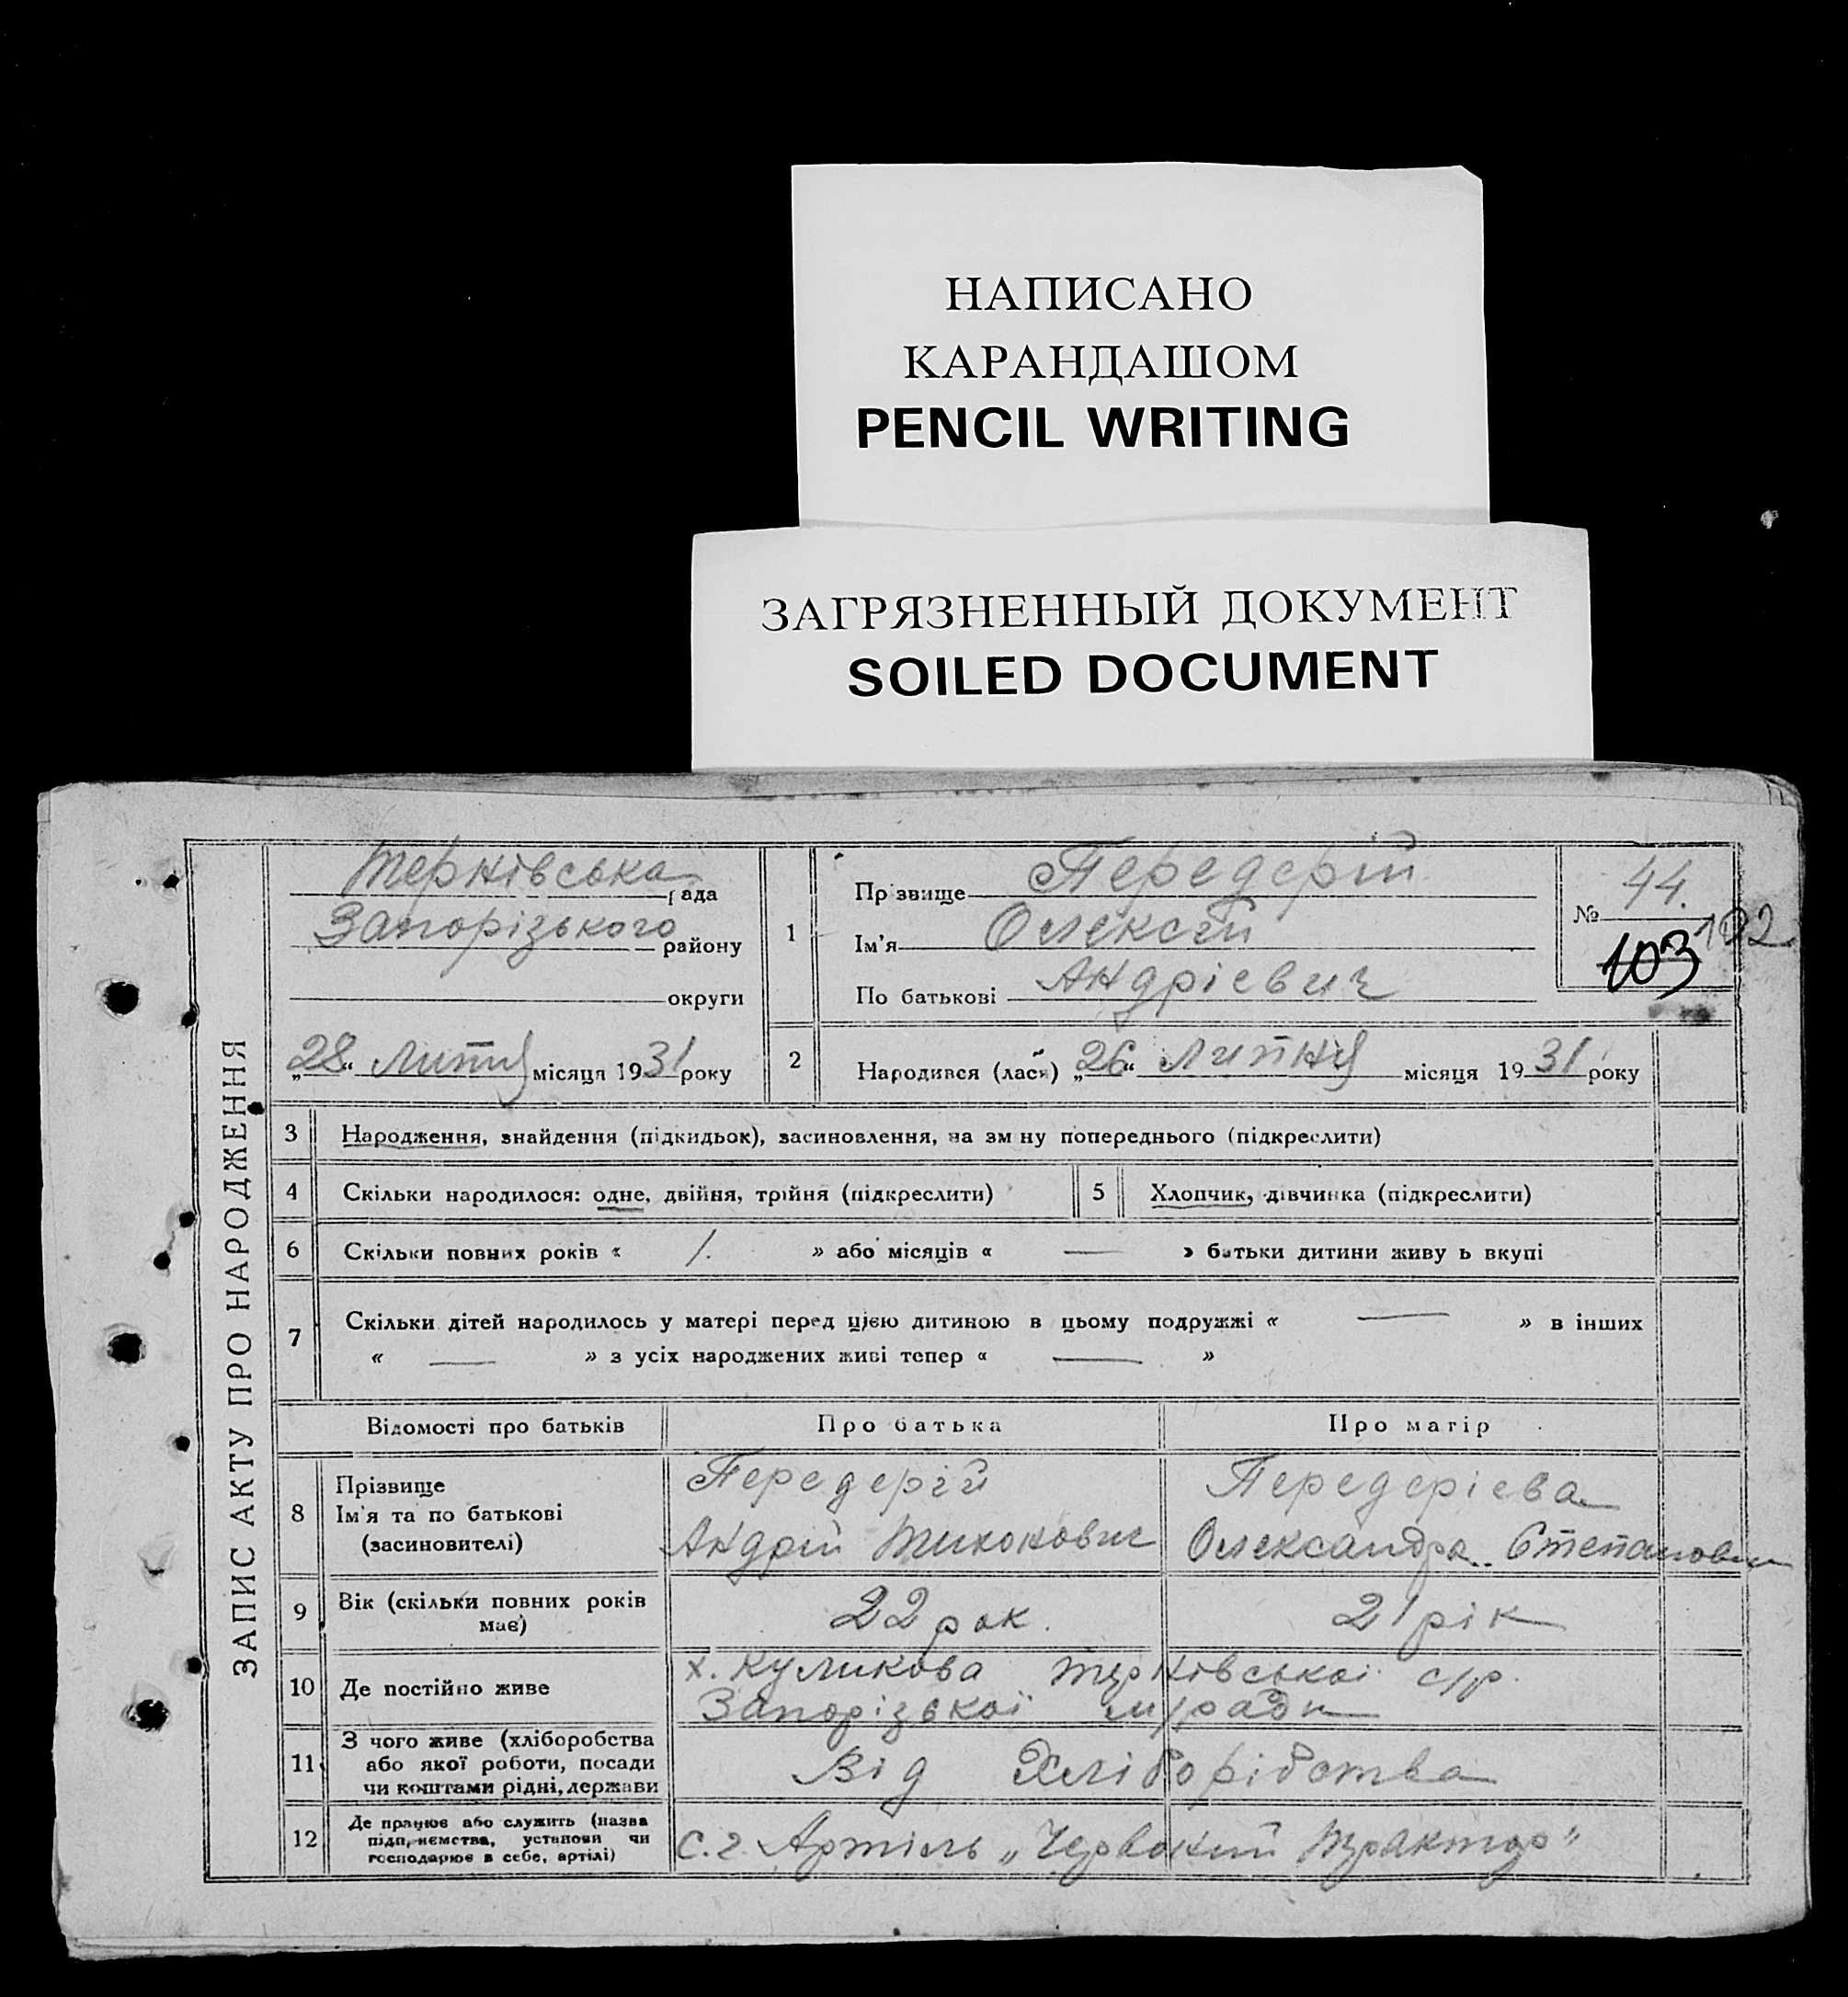 НАПИСАНО
КАРАНДАШОМ
PENCIL WRITING
ЗАГРЯЗНЕННЫЙ ДОКУМЕНТ
SOILED DOCUMENT
ЗАПИС АКТУ ПРО НАРОДЖЕННЯ
Тернівська рада
Запорізького району
округи
„28“ Липня місяця 1931 року
1
Прізвище Передерій
Ім'я Олексій
По батькові Андрієвич
№ 44.
103 102
2 Народився (лась) „26“ Липня місяця 1931 року
3 Народження, знайдення (підкидьок), засиновлення, на зм ну попереднього (підкреслити)
4 Скільки народилося: одне, двійня, трійня (підкреслити) 5 Хлопчик, дівчинка (підкреслити)
6 Скільки повних років « 1. » або місяців « — » батьки дитини живу ь вкупі
7 Скільки дітей народилось у матері перед цією дитиною в цьому подружжі « — » в інших
« — » з усіх народжених живі тепер « — »
Відомості про батьків Про батька Про матір
8 Прізвище
Ім'я та по батькові
(засиновителі)
Передерій
Андрій Тихонович
Передерієва
Олександра Степановн
9 Вік (скільки повних років
має)
22 рок. 21 рік
10 Де постійно живе
х. Куликова Тернівської с/р.
Запорізької м/ради
11 З чого живе (хліборобства
або якої роботи, посади
чи коштами рідні, держави
Від Хліборібства
12 Де працює або служить (назва
підприємства, установи чи
господарює в себе, артілі)
С.г. Артіль „Червоний Трактор"